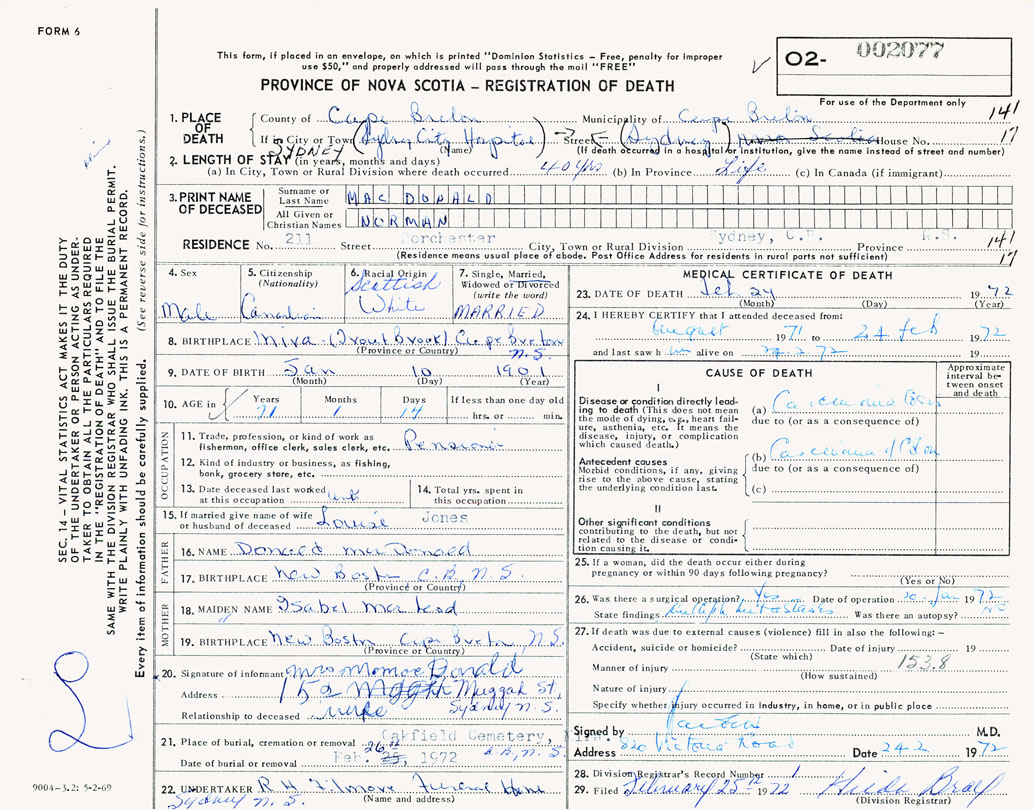 FORM 6
This form, if placed in an envelope, on which is printed "Dominion Statistics – Free, penalty for improper
use $50," and properly addressed will pass through the mail "FREE"
PROVINCE OF NOVA SCOTIA – REGISTRATION OF DEATH
✓ O2- 002077
For use of the Department only
1. PLACE OF DEATH
County of Cape Breton Municipality of Cape Breton 141
If in City or Town (Sydney City Hospital) Street (Sydney) Nova Scotia House No. 17
SYDNEY (Name) (If death occurred in a hospital or institution, give the name instead of street and number)
2. LENGTH OF STAY (in years, months and days)
(a) In City, Town or Rural Division where death occurred 40 yrs (b) In Province Life (c) In Canada (if immigrant)
3. PRINT NAME OF DECEASED
Surname or Last Name MAC DONALD
All Given or Christian Names NORMAN
RESIDENCE No. 211 Street Dorchester City, Town or Rural Division Sydney, C.B. Province N.S. 141
(Residence means usual place of abode. Post Office Address for residents in rural parts not sufficient) 17
4. Sex
Male
5. Citizenship
(Nationality)
Canadian
6. Racial Origin
Scottish
White
7. Single, Married,
Widowed or Divorced
(write the word)
MARRIED
8. BIRTHPLACE Mira (Trout Brook) Cape Breton
(Province or Country) N.S.
9. DATE OF BIRTH Jan 10 1901
(Month) (Day) (Year)
10. AGE in Years Months Days If less than one day old
71 1 14 hrs. or min.
OCCUPATION
11. Trade, profession, or kind of work as
fisherman, office clerk, sales clerk, etc. Pensioner
12. Kind of industry or business, as fishing,
bank, grocery store, etc.
13. Date deceased last worked
at this occupation
14. Total yrs. spent in
this occupation
15. If married give name of wife
or husband of deceased Louise Jones
FATHER
16. NAME Donald MacDonald
17. BIRTHPLACE New Boston C.B., N.S.
(Province or Country)
MOTHER
18. MAIDEN NAME Isabel MacLeod
19. BIRTHPLACE New Boston Cape Breton, N.S.
(Province or Country)
20. Signature of informant Mrs Donald
Address 152 Muggah St,
Sydney N.S.
Relationship to deceased
21. Place of burial, cremation or removal Oakfield Cemetery, Mira
C.B., N.S.
Date of burial or removal Feb. 25, 26th 1972
22. UNDERTAKER R H Fillmore Funeral Home
Sydney N.S. (Name and address)
MEDICAL CERTIFICATE OF DEATH
23. DATE OF DEATH Feb 24 1972
(Month) (Day) (Year)
24. I HEREBY CERTIFY that I attended deceased from:
August 1971 to 24 feb 1972
and last saw him alive on 24.2.72 19
CAUSE OF DEATH
Approximate interval between onset and death
I
Disease or condition directly leading to death (This does not mean the mode of dying, e.g., heart failure, asthenia, etc. It means the disease, injury, or complication which caused death.)
(a)
due to (or as a consequence of)
Antecedent causes
Morbid conditions, if any, giving rise to the above cause, stating the underlying condition last.
(b) Carcinoma of Colon
due to (or as a consequence of)
(c)
II
Other significant conditions
contributing to the death, but not related to the disease or condition causing it.
25. If a woman, did the death occur either during
pregnancy or within 90 days following pregnancy?
(Yes or No)
26. Was there a surgical operation? Yes Date of operation 20 Jan 1972
State findings Multiple metastases Was there an autopsy? No
27. If death was due to external causes (violence) fill in also the following: –
Accident, suicide or homicide? Date of injury 19
(State which) 153.8
Manner of injury
(How sustained)
Nature of injury
Specify whether injury occurred in industry, in home, or in public place
Signed by M.D.
Address 820 Victoria Road Date 24 2 1972
28. Division Registrar's Record Number 1
29. Filed February 25th 1972 Hilda
(Division Registrar)
SEC. 14 – VITAL STATISTICS ACT MAKES IT THE DUTY
OF THE UNDERTAKER OR PERSON ACTING AS UNDER-
TAKER TO OBTAIN ALL THE PARTICULARS REQUIRED
IN THE "REGISTRATION OF DEATH" AND TO FILE THE
SAME WITH THE DIVISION REGISTRAR WHO SHALL ISSUE THE BURIAL PERMIT.
WRITE PLAINLY WITH UNFADING INK. THIS IS A PERMANENT RECORD.
Every item of information should be carefully supplied. (See reverse side for instructions.)
9004-3.2: 5-2-69